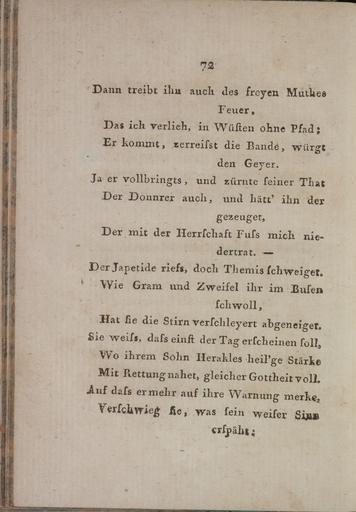 72
Dann treibt ihn auch des freyen Muthes
Feuer,
Das ich verlieh, in Wüſten ohne Pfad;
Er kommt, zerreiſst die Bande, würgt
den Geyer.
Ja er vollbringts, und zürnte ſeiner That
Der Donnrer auch, und hätt' ihn der
gezeuget,
Der mit der Herrſchaft Fuſs mich nie-
dertrat. —
Der Japetide riefs, doch Themis ſchweiget.
Wie Gram und Zweifel ihr im Buſen
ſchwoll,
Hat ſie die Stirn verſchleyert abgeneiget.
Sie weiſs, daſs einſt der Tag erſcheinen ſoll,
Wo ihrem Sohn Herakles heil'ge Stärke
Mit Rettung nahet, gleicher Gottheit voll.
Auf daſs er mehr auf ihre Warnung merke,
Verſchwieg ſie, was ſein weiſer Sinn
erſpäht;